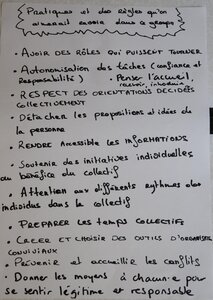 Pratiques et des règles qu'on
aimerait avoir dans ce groupe
• AVOIR DES RÔLES QUI PUISSENT TOURNER
• Autonomisation des tâches (confiance et
responsabilité) • Penser l'accueil,
recevoir, introduire
• RESPECT DES ORIENTATIONS DÉCIDÉES
COLLECTIVEMENT
• Détacher les propositions et idées de
la personne
• RENDRE Accessible les INFORMATIONS
• Soutenir des initiatives individuelles
au bénéfice du collectif
• Attention aux différents rythmes des
individus dans le collectif
• PREPARER LES TEMPS COLLECTIFS
• CRÉER ET CHOISIR DES OUTILS D'ORGANISATION
CONVIVIAUX
• Prévenir et accueillir les conflits
• Donner les moyens à chacun·e pour
se sentir légitime et responsable